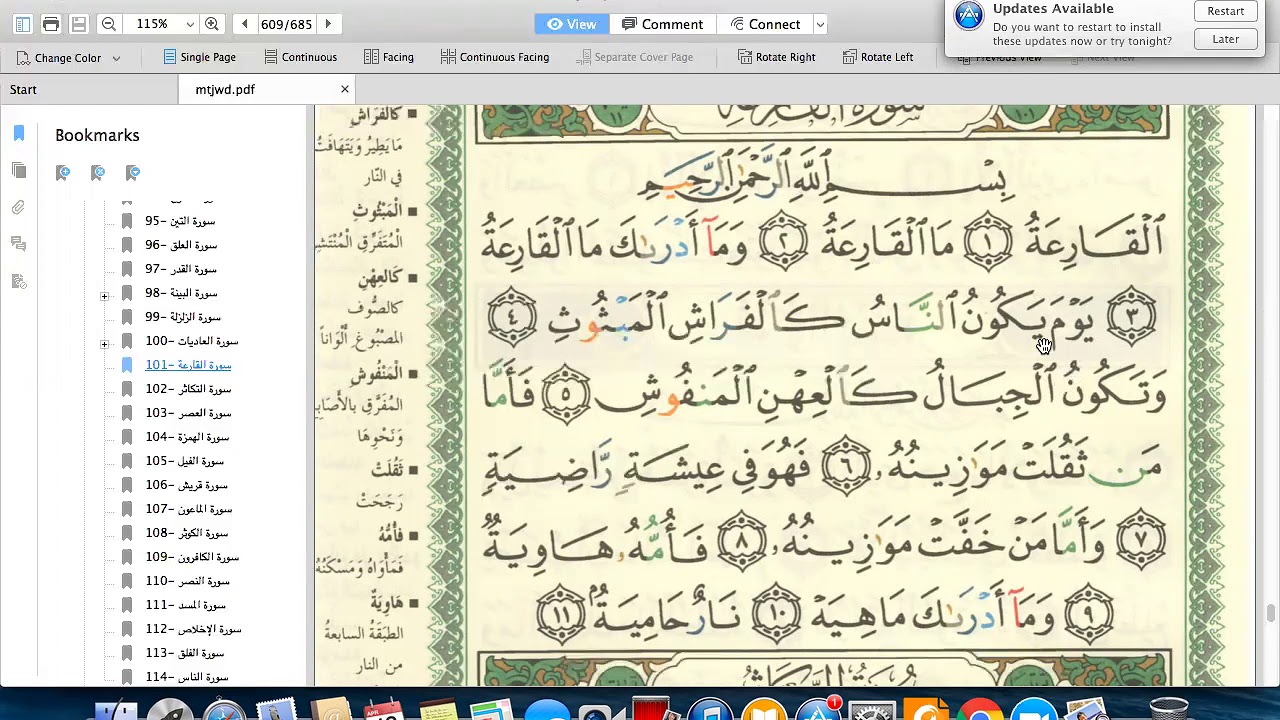 115%
609/685
View
Comment
Connect
Updates Available
Do you want to restart to install
these updates now or try tonight?
Restart
Later
Change Color
Single Page
Continuous
Facing
Continuous Facing
Separate Cover Page
Rotate Right
Rotate Left
Previous View
Next View
Start
mtjwd.pdf
Bookmarks
95- سورة التين
96- سورة العلق
97- سورة القدر
98- سورة البينة
99- سورة الزلزلة
100- سورة العاديات
101- سورة القارعة
102- سورة التكاثر
103- سورة العصر
104- سورة الهمزة
105- سورة الفيل
106- سورة قريش
107- سورة الماعون
108- سورة الكوثر
109- سورة الكافرون
110- سورة النصر
111- سورة المسد
112- سورة الإخلاص
113- سورة الفلق
114- سورة الناس
كَالْفَرَاشِ
مَا يَطِيرُ وَيَتَهَافَتُ
فِي النَّارِ
الْمَبْثُوثِ
الْمُتَفَرِّقِ الْمُنْتَشِرِ
كَالْعِهْنِ
كَالصُّوفِ
المَصْبُوغِ أَلْوَاناً
الْمَنْفُوشِ
المُفَرَّقِ بِالأَصَابِعِ
وَنَحْوِهَا
ثَقُلَتْ
رَجَحَتْ
فَأُمُّهُ
فَمَأْوَاهُ وَمَسْكَنُهُ
هَاوِيَةٌ
الطَّبَقَةُ السابعةُ
من النار
سُورَةُ القَارِعَةِ
بِسْمِ ٱللَّهِ ٱلرَّحْمَٰنِ ٱلرَّحِيمِ
ٱلْقَارِعَةُ ١ مَا ٱلْقَارِعَةُ ٢ وَمَآ أَدْرَىٰكَ مَا ٱلْقَارِعَةُ
٣ يَوْمَ يَكُونُ ٱلنَّاسُ كَٱلْفَرَاشِ ٱلْمَبْثُوثِ ٤
وَتَكُونُ ٱلْجِبَالُ كَٱلْعِهْنِ ٱلْمَنفُوشِ ٥ فَأَمَّا
مَن ثَقُلَتْ مَوَٰزِينُهُۥ ٦ فَهُوَ فِى عِيشَةٍ رَّاضِيَةٍ
٧ وَأَمَّا مَنْ خَفَّتْ مَوَٰزِينُهُۥ ٨ فَأُمُّهُۥ هَاوِيَةٌ
٩ وَمَآ أَدْرَىٰكَ مَا هِيَهْ ١٠ نَارٌ حَامِيَةٌۢ ١١
سُورَةُ التَّكَاثُرِ